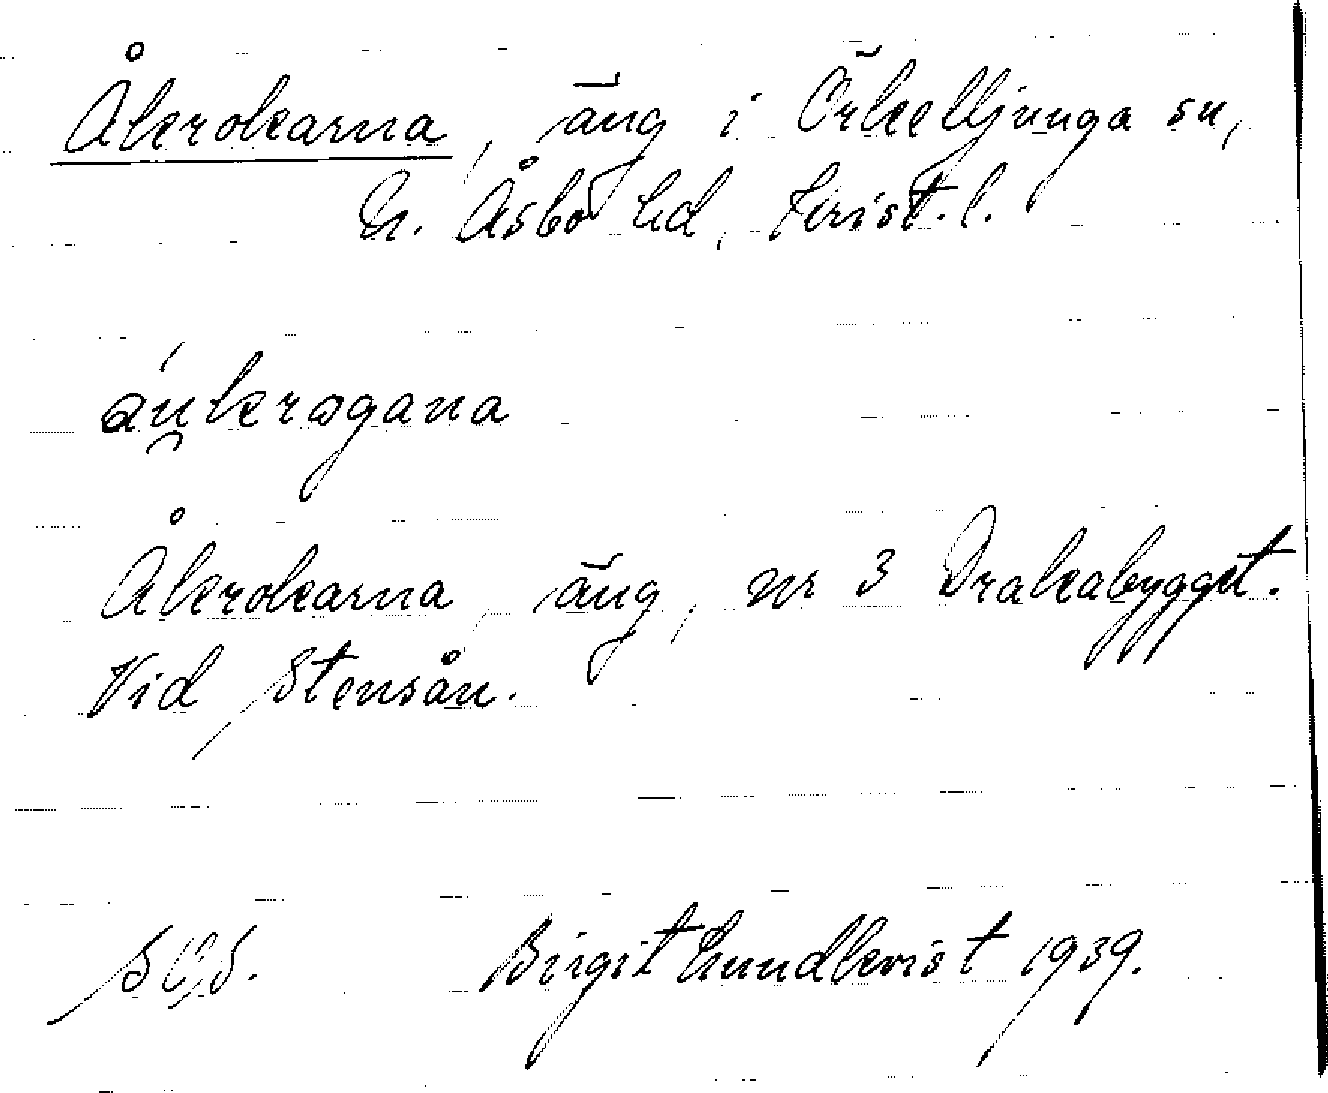 Åkrokarna, äng i Örkelljunga sn,
N. Åsbo hd, Krist. l.
Åkrokarna, äng, nr 3 Drakabygget.
Vid Stensån.
Birgit Lundkvist 1939.